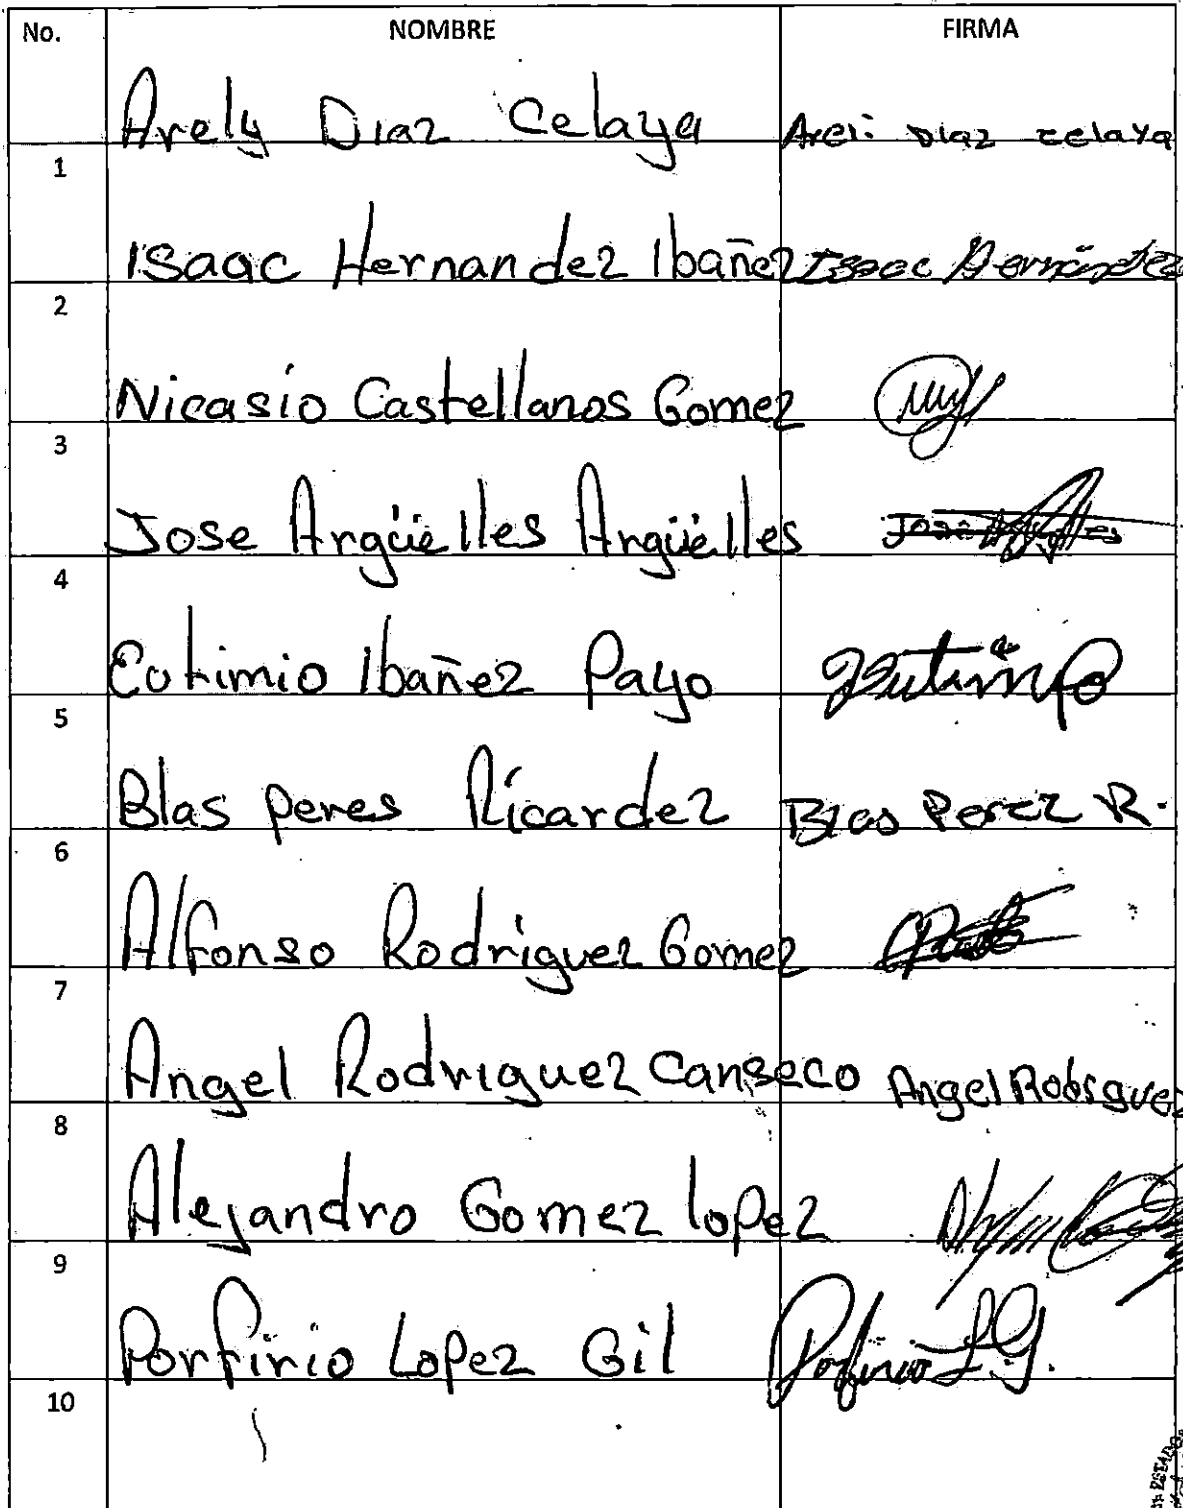 No. NOMBRE FIRMA
Arely Diaz Celaya Areli Diaz Celaya
1
Isaac Hernandez Ibañez Isaac Hernández
2
Nicasio Castellanos Gomez
3
Jose Argüelles Argüelles José
4
Eutimio Ibañez Payo Eutimio
5
Blas peres Ricardez Blas Perez R.
6
Alfonso Rodriguez Gomez
7
Angel Rodriguez Canseco Angel Rodrsguez
8
Alejandro Gomez lopez
9
Porfirio Lopez Gil Porfirio L.G.
10